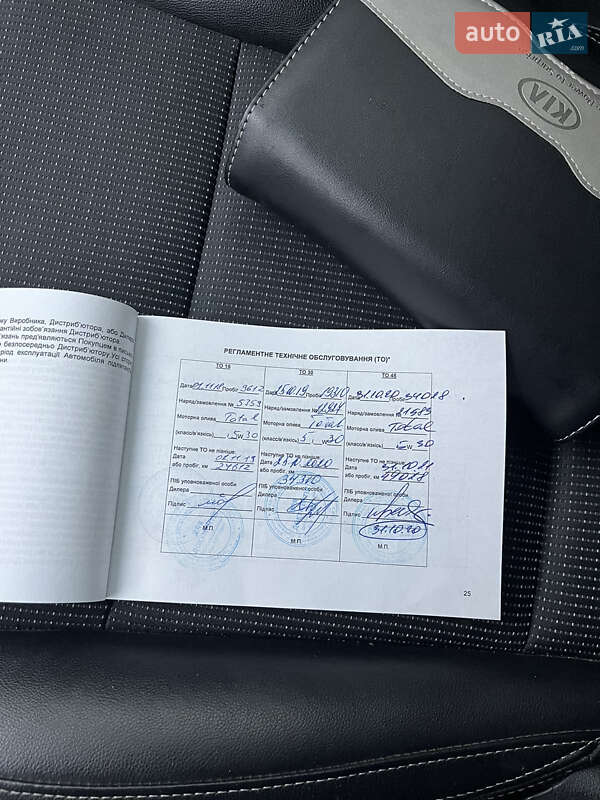 auto RIA
.com
The Power to Surprise
KIA
му Виробника, Дистриб'ютора, або Дилера
антійні зобов'язання Дистриб'ютора.
пред'являються Покупцем в
безпосередньо Дистриб'ютору. Усі
ріод експлуатації Автомобіля підлягає
РЕГЛАМЕНТНЕ ТЕХНІЧНЕ ОБСЛУГОВУВАННЯ (ТО)*
ТО 15 ТО 30 ТО 45
Дата 01.11.18 Пробіг 9612 Дата 19310 31.10.20 34018
Наряд/замовлення № 5759 Наряд/замовлення Наряд/замовлення №
Моторна олива Total Моторна олива Total Моторна олива Total
(класс/в'язкість) 5W30 (класс/в'язкість) 5 W30 (класс/в'язкість) 5W30
Наступне ТО не пізніше: Наступне ТО не пізніше: Наступне ТО не пізніше:
Дата 01.11.19 Дата Дата
або пробіг, км 24612 або пробіг, км 34310 або пробіг, км 49018
ПІБ уповноваженої особи ПІБ уповноваженої особи ПІБ уповноваженої особи
Дилера Дилера Дилера
Підпис Підпис Підпис
31.10.20
М.П. М.П. М.П.
25